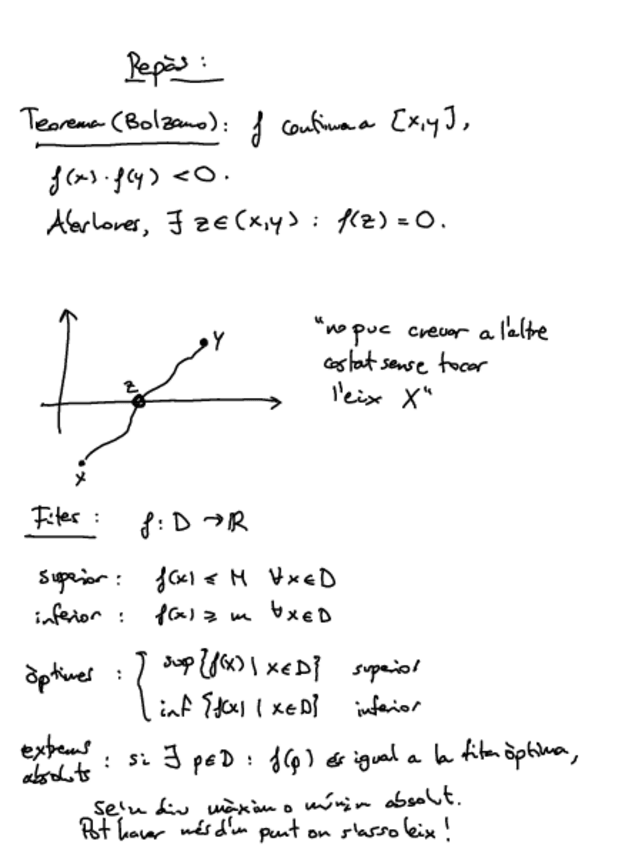 Repàs :
Teorema (Bolzano) : f contínua a [x,y],
f(x)·f(y) < 0.
Aleshores, ∃ z ∈ (x,y) : f(z) = 0.
y
z
x
"no puc creuar a l'altre
costat sense tocar
l'eix X"
Fites : f : D → ℝ
superior : f(x) ≤ M ∀x∈D
inferior : f(x) ≥ m ∀x∈D
òptimes : { sup {f(x) | x∈D} superior
inf {f(x) | x∈D} inferior
extrems
absoluts : si ∃ p∈D : f(p) és igual a la fita òptima,
se'n diu màxim o mínim absolut.
Pot haver més d'un punt on s'assoleix !